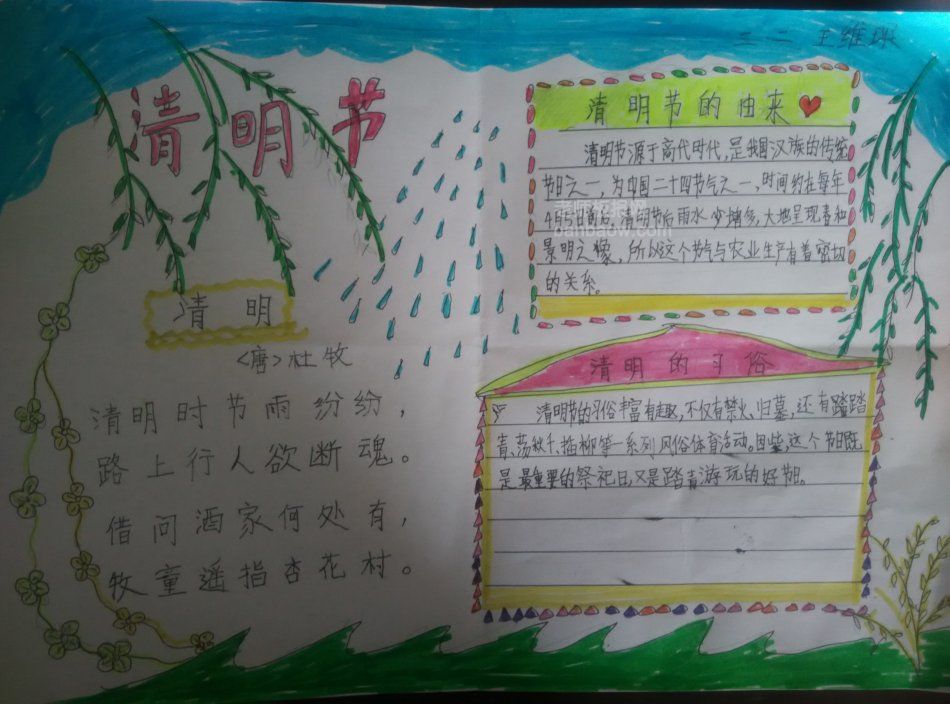 三二 王维琛
清明节
清明
<唐>杜牧
清明时节雨纷纷，
路上行人欲断魂。
借问酒家何处有，
牧童遥指杏花村。
清明节的由来
清明节源于商代时代，是我国汉族的传统
节日之一，为中国二十四节气之一，时间约在每年
4月5日前后，清明节后雨水少增多，大地呈现春和
景明之像，所以这个节气与农业生产有着密切
的关系。
老师板报网
banbaowl.com
清明的习俗
清明节的习俗丰富有趣，不仅有禁火、归墓，还有踏踏
青、荡秋千、插柳等一系列风俗体育活动。因此，这个节日既
是最重要的祭祀日，又是踏青游玩的好节日。